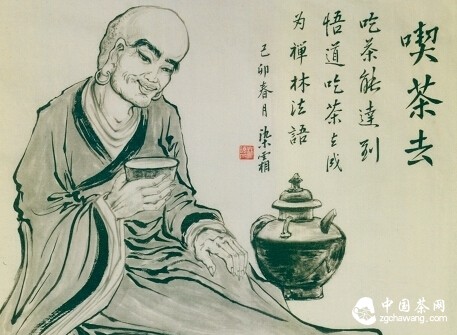 喫茶去
吃茶能達到
悟道吃茶去成
为禅林法語
己卯春月 染霜
中国茶网
zgchawang.com